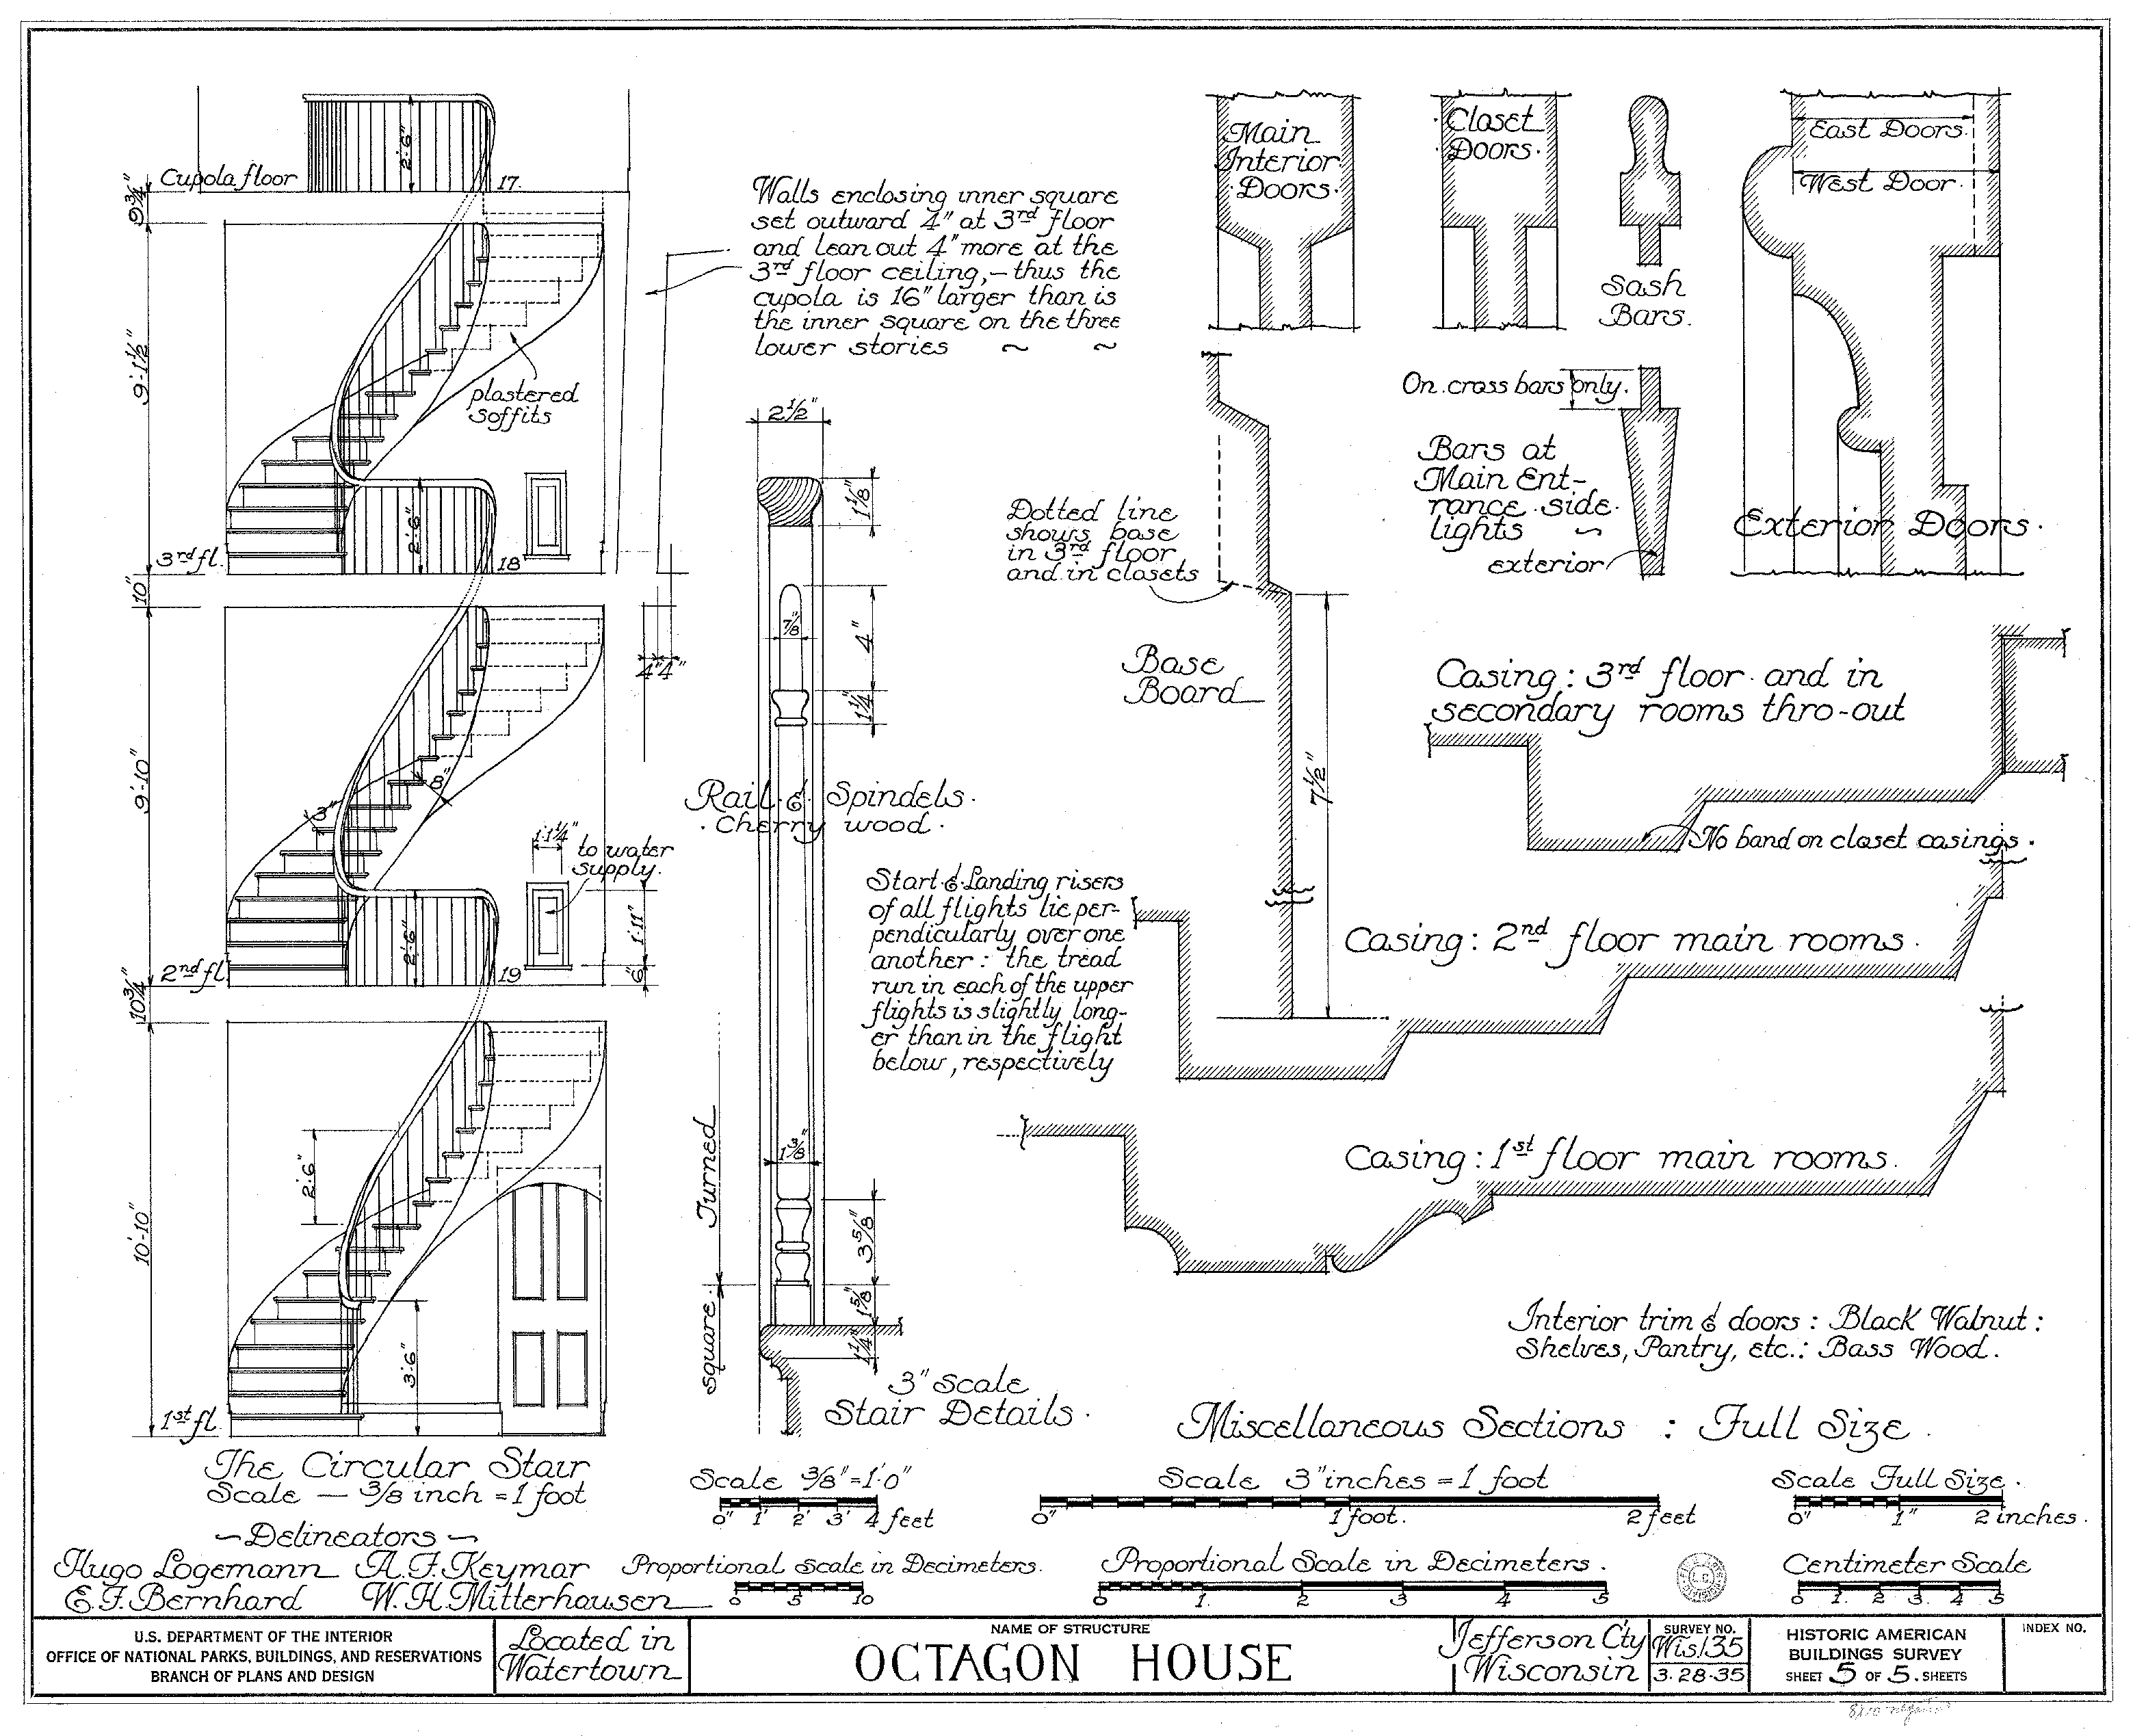 Cupola floor
2'-6"
17.
9¾"
9'-1½"
plastered
soffits
2'-6"
3rd fl.
18
10"
4" 4"
9'-10"
8"
3"
1'-1¼"
to water
supply.
2'-6"
1'-11"
6"
2nd fl.
19
10¾"
2'-6"
10'-10"
3'-6"
1st fl.
The Circular Stair
Scale — 3/8 inch = 1 foot
Walls enclosing inner square
set outward 4" at 3rd floor
and lean out 4" more at the
3rd floor ceiling, – thus the
cupola is 16" larger than is
the inner square on the three
lower stories ~ ~
2½"
1⅛"
7/8"
4"
1¼"
Rail & Spindels.
. Cherry wood .
Start & Landing risers
of all flights lie per-
pendicularly over one
another : the tread
run in each of the upper
flights is slightly long-
er than in the flight
below, respectively
1⅜"
Turned
3⅝"
square.
1⅝"
1¼"
3" Scale
Stair Details .
Main
Interior
. Doors .
Closet
Doors.
Sash
Bars.
East Doors.
West Door.
Exterior Doors .
On cross bars only.
Bars at
Main Ent-
rance side-
lights ~
exterior
Dotted line
shows base
in 3rd floor
and in closets
Base
Board
7½"
Casing : 3rd floor and in
secondary rooms thro-out
No band on closet casings .
Casing : 2nd floor main rooms .
Casing : 1st floor main rooms.
Interior trim & doors : Black Walnut :
Shelves, Pantry, etc.: Bass Wood .
Miscellaneous Sections : Full Size .
Scale 3/8" = 1'-0"
0" 1' 2' 3' 4 feet
Scale 3" inches = 1 foot
0" 1 foot. 2 feet
Scale Full Size .
0" 1" 2 inches .
~ Delineators ~
Hugo Logemann A.F. Keymar
E.F. Bernhard W.H. Mitterhausen
Proportional Scale in Decimeters.
0 5 10
Proportional Scale in Decimeters .
0 1. 2 3 4 5
Centimeter Scale
0 1. 2 3. 4 5
U.S. DEPARTMENT OF THE INTERIOR
OFFICE OF NATIONAL PARKS, BUILDINGS, AND RESERVATIONS
BRANCH OF PLANS AND DESIGN
Located in
Watertown
NAME OF STRUCTURE
OCTAGON HOUSE
Jefferson Cty
Wisconsin
SURVEY NO.
Wis. 135
3-28-35
HISTORIC AMERICAN
BUILDINGS SURVEY
SHEET 5 OF 5 SHEETS
INDEX NO.